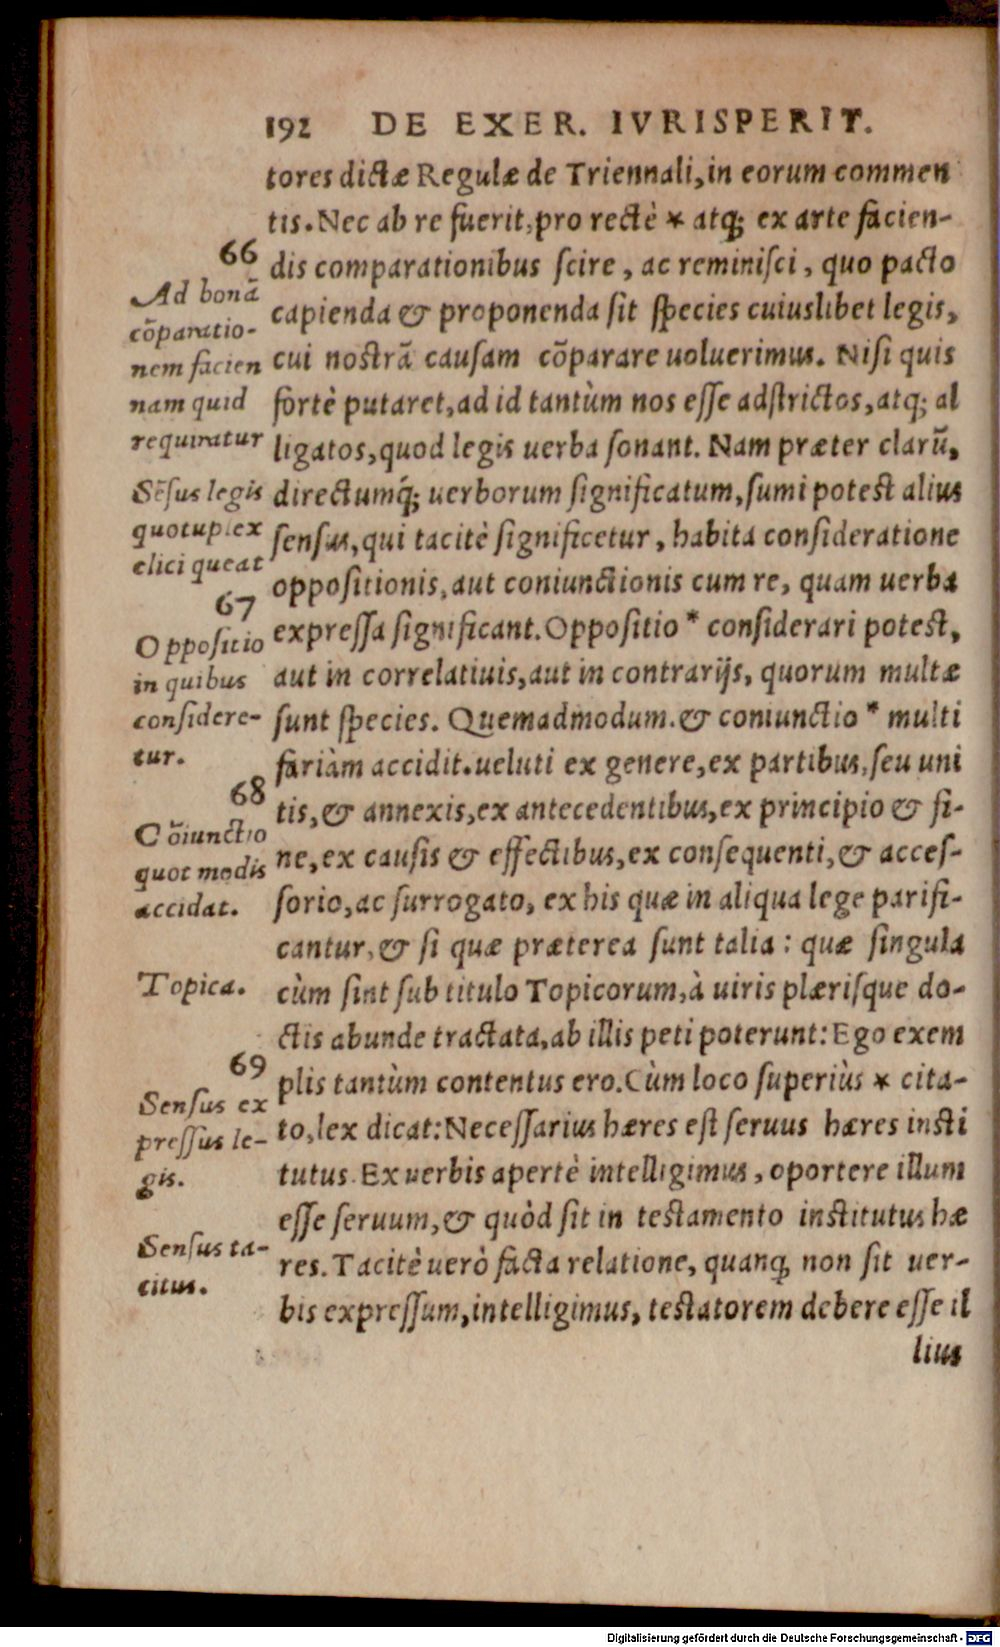 192 DE EXER. IVRISPERIT.
tores dictæ Regulæ de Triennali, in eorum commen
tis. Nec ab re fuerit, pro rectè * atq; ex arte facien-
dis comparationibus scire, ac reminisci, quo pacto
capienda & proponenda sit species cuiuslibet legis,
cui nostrā causam cōparare uoluerimus. Nisi quis
fortè putaret, ad id tantùm nos esse adstrictos, atq; al
ligatos, quod legis uerba sonant. Nam præter clarū,
directumq́; uerborum significatum, sumi potest alius
sensus, qui tacitè significetur, habita consideratione
oppositionis, aut coniunctionis cum re, quam uerba
expressa significant. Oppositio * considerari potest,
aut in correlatiuis, aut in contrarijs, quorum multæ
sunt species. Quemadmodum. & coniunctio * multi
fariàm accidit. ueluti ex genere, ex partibus, seu uni
tis, & annexis, ex antecedentibus, ex principio & fi-
ne, ex causis & effectibus, ex consequenti, & acces-
sorio, ac surrogato, ex his quæ in aliqua lege parifi-
cantur, & si quæ præterea sunt talia: quæ singula
cùm sint sub titulo Topicorum, à uiris plærisque do-
ctis abunde tractata, ab illis peti poterunt: Ego exem
plis tantùm contentus ero. Cùm loco superiùs * cita-
to, lex dicat: Necessarius hæres est seruus hæres insti
tutus. Ex uerbis apertè intelligimus, oportere illum
esse seruum, & quòd sit in testamento institutus hæ
res. Tacitè uerò facta relatione, quanq̃ non sit uer-
bis expressum, intelligimus, testatorem debere esse il
lius
66
Ad bonā
cōparatio-
nem facien
nam quid
requiratur
Sēsus legis
quotuplex
elici queat
67
Oppositio
in quibus
considere-
tur.
68
Cōiunctio
quot modis
accidat.
Topica.
69
Sensus ex
pressus le-
gis.
Sensus ta-
citus.
Digitalisierung gefördert durch die Deutsche Forschungsgemeinschaft - DFG